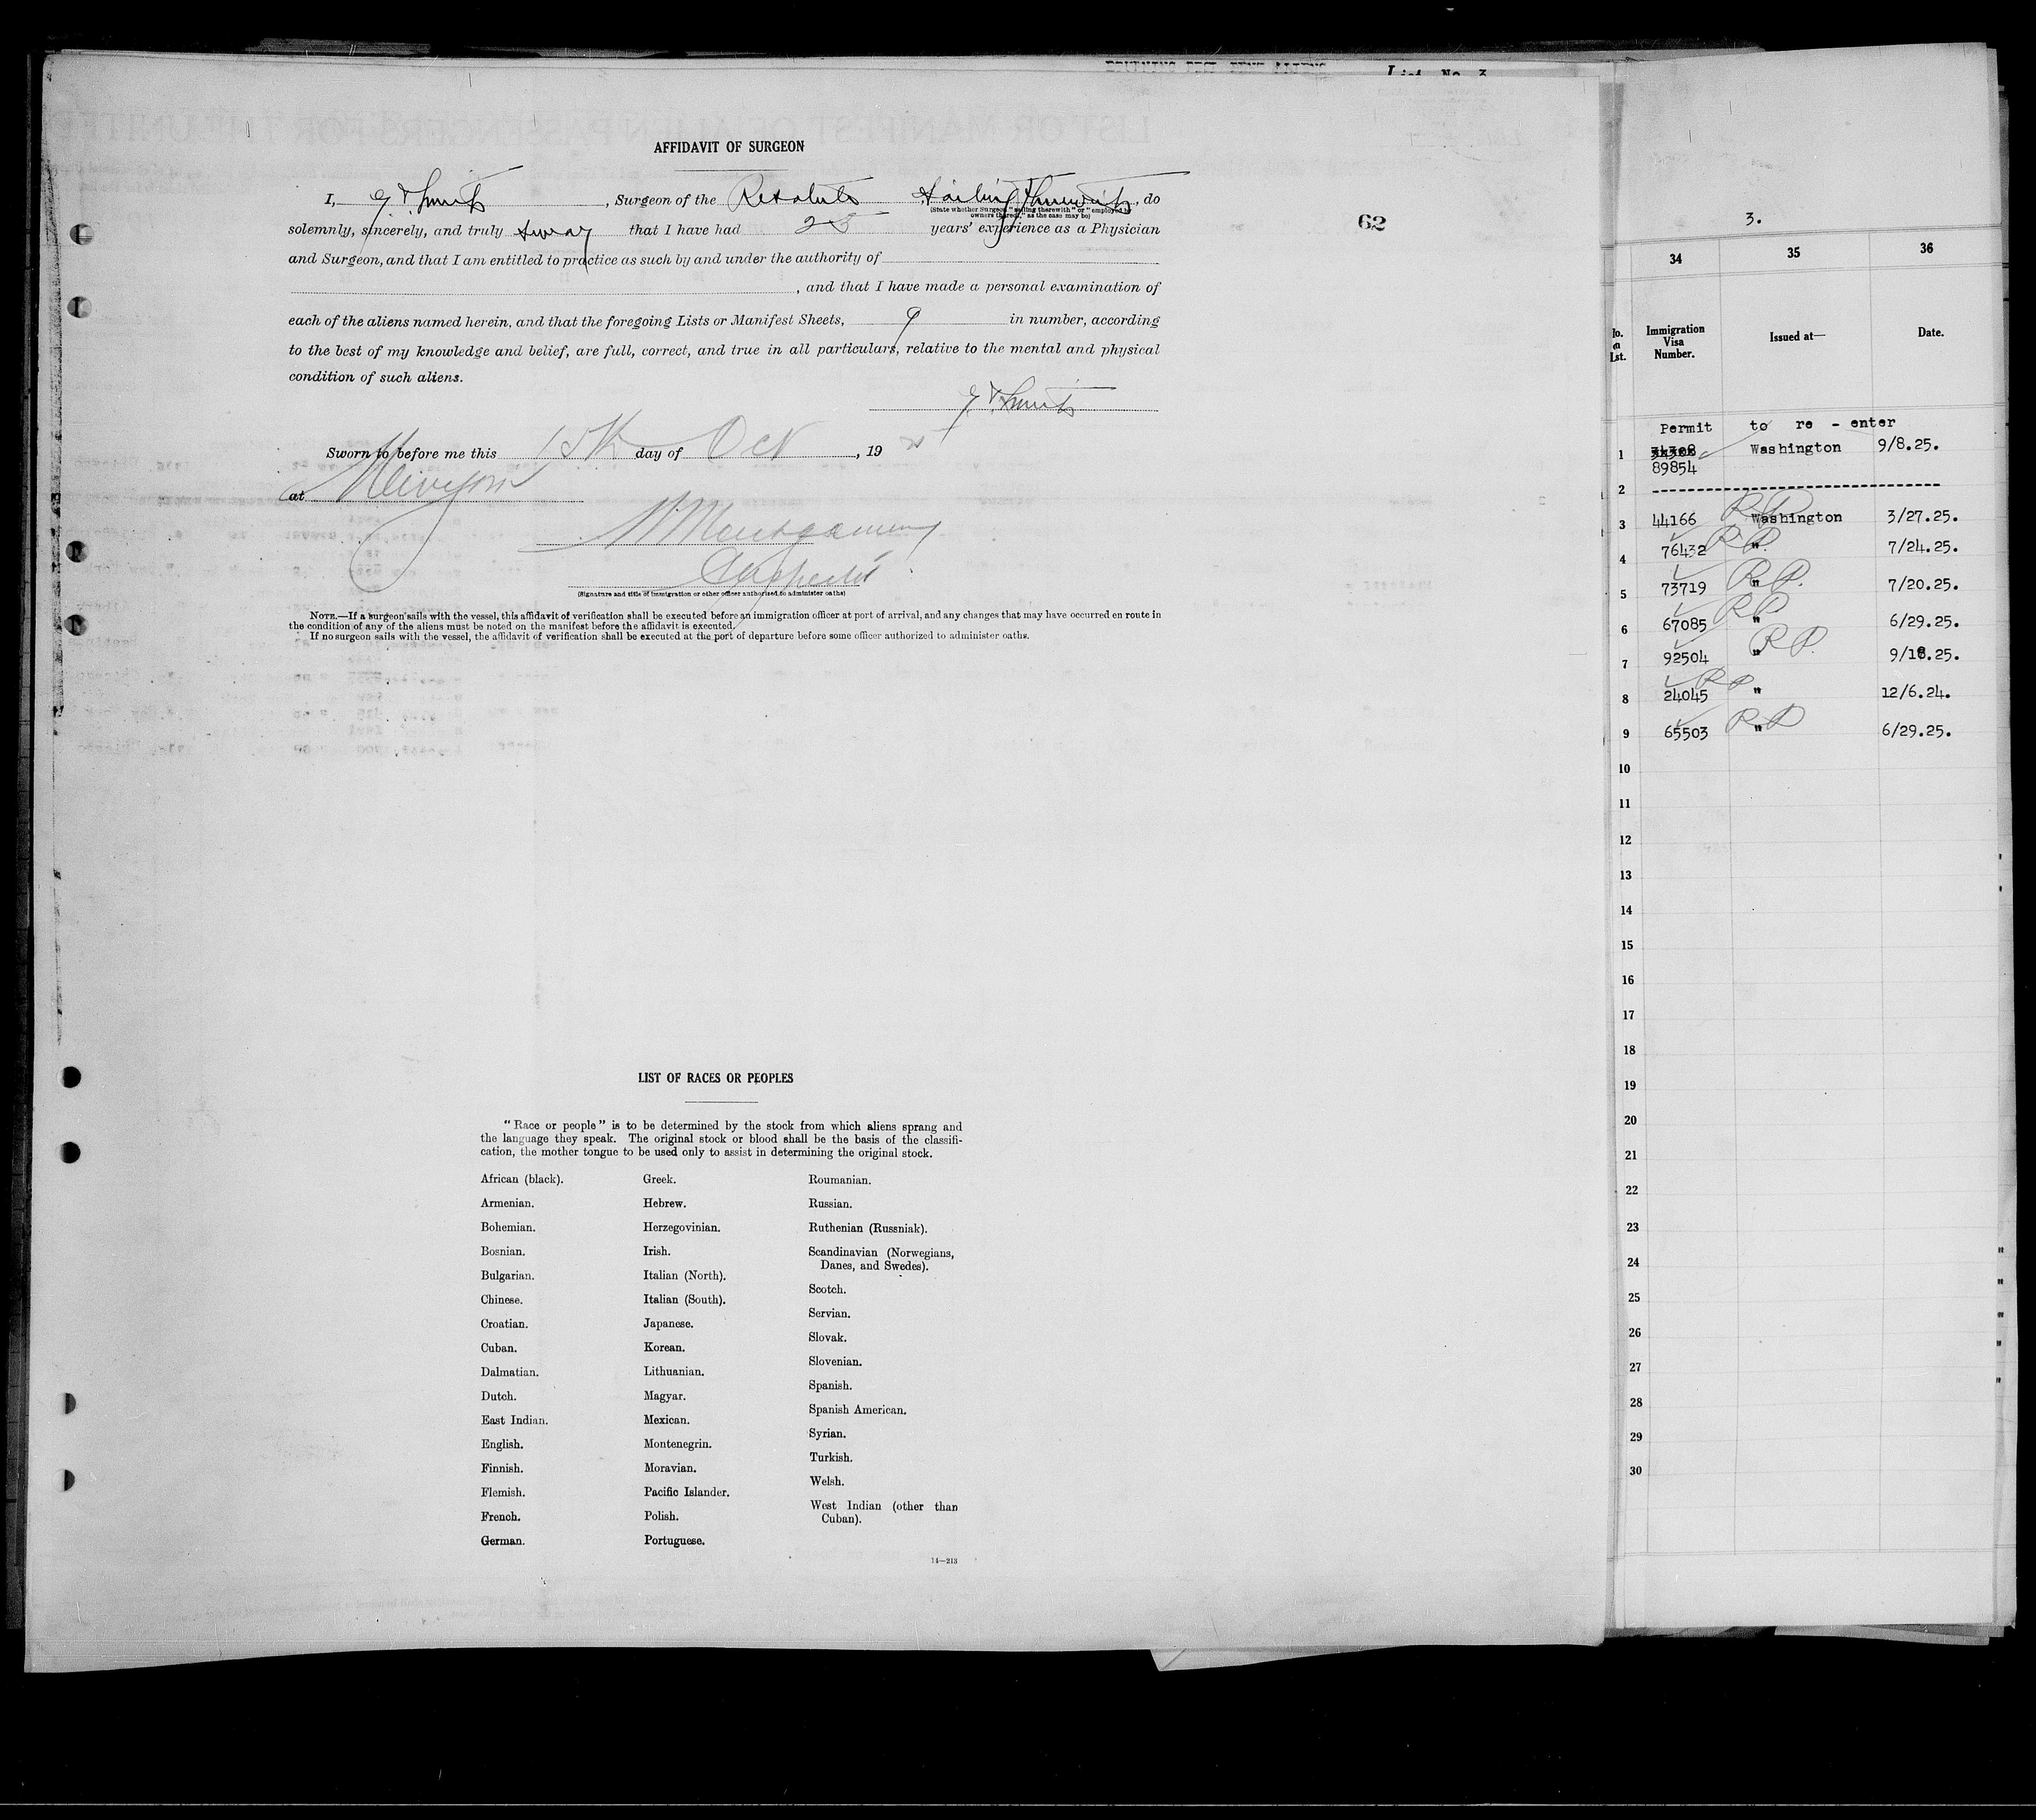 List No. 3
AFFIDAVIT OF SURGEON
I, , Surgeon of the Resolute Sailing Therewith, do
(State whether Surgeon "sailing therewith" or "employed by
owners thereof," as the case may be)
solemnly, sincerely, and truly swear that I have had 25 years' experience as a Physician
and Surgeon, and that I am entitled to practice as such by and under the authority of
, and that I have made a personal examination of
each of the aliens named herein, and that the foregoing Lists or Manifest Sheets, 9 in number, according
to the best of my knowledge and belief, are full, correct, and true in all particulars, relative to the mental and physical
condition of such aliens.
Sworn to before me this 15th day of Oct, 19
at
Montgomery
(Signature and title of immigration or other officer authorized to administer oaths)
NOTE.—If a surgeon sails with the vessel, this affidavit of verification shall be executed before an immigration officer at port of arrival, and any changes that may have occurred en route in
the condition of any of the aliens must be noted on the manifest before the affidavit is executed.
If no surgeon sails with the vessel, the affidavit of verification shall be executed at the port of departure before some officer authorized to administer oaths.
LIST OF RACES OR PEOPLES
"Race or people" is to be determined by the stock from which aliens sprang and
the language they speak. The original stock or blood shall be the basis of the classifi-
cation, the mother tongue to be used only to assist in determining the original stock.
African (black).
Armenian.
Bohemian.
Bosnian.
Bulgarian.
Chinese.
Croatian.
Cuban.
Dalmatian.
Dutch.
East Indian.
English.
Finnish.
Flemish.
French.
German.
Greek.
Hebrew.
Herzegovinian.
Irish.
Italian (North).
Italian (South).
Japanese.
Korean.
Lithuanian.
Magyar.
Mexican.
Montenegrin.
Moravian.
Pacific Islander.
Polish.
Portuguese.
Roumanian.
Russian.
Ruthenian (Russniak).
Scandinavian (Norwegians,
Danes, and Swedes).
Scotch.
Servian.
Slovak.
Slovenian.
Spanish.
Spanish American.
Syrian.
Turkish.
Welsh.
West Indian (other than
Cuban).
14—213
62
3.
34 35 36
No. on Lst. Immigration Visa Number. Issued at— Date.
Permit to re - enter
1 Washington 9/8.25.
89854
2
3 44166 RP Washington 3/27.25.
4 76432 RP " 7/24.25.
5 73719 RP. " 7/20.25.
6 67085 RP " 6/29.25.
7 92504 RP. " 9/18.25.
8 24045 RP " 12/6.24.
9 65503 RP " 6/29.25.
10
11
12
13
14
15
16
17
18
19
20
21
22
23
24
25
26
27
28
29
30